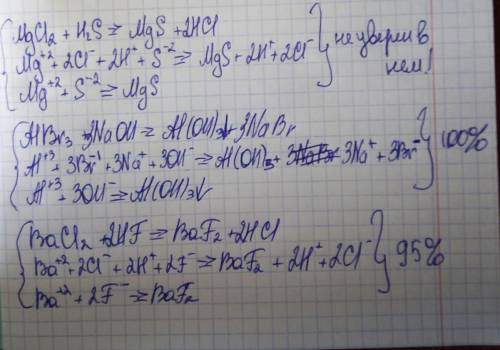 MgCl2 + H2S ⇄ MgS + 2HCl
Mg+2 + 2Cl- + 2H+ + S-2 ⇄ MgS + 2H+ + 2Cl-
Mg+2 + S-2 ⇄ MgS
не уверен в нем!
AlBr3 + 3NaOH = Al(OH)3↓ + 3NaBr
Al+3 + 3Br- + 3Na+ + 3OH- = Al(OH)3 + 3Na+ + 3Br-
Al+3 + 3OH- = Al(OH)3↓
100%
BaCl2 + 2HF ⇄ BaF2 + 2HCl
Ba+2 + 2Cl- + 2H+ + 2F- ⇄ BaF2 + 2H+ + 2Cl-
Ba+2 + 2F- ⇄ BaF2
95%